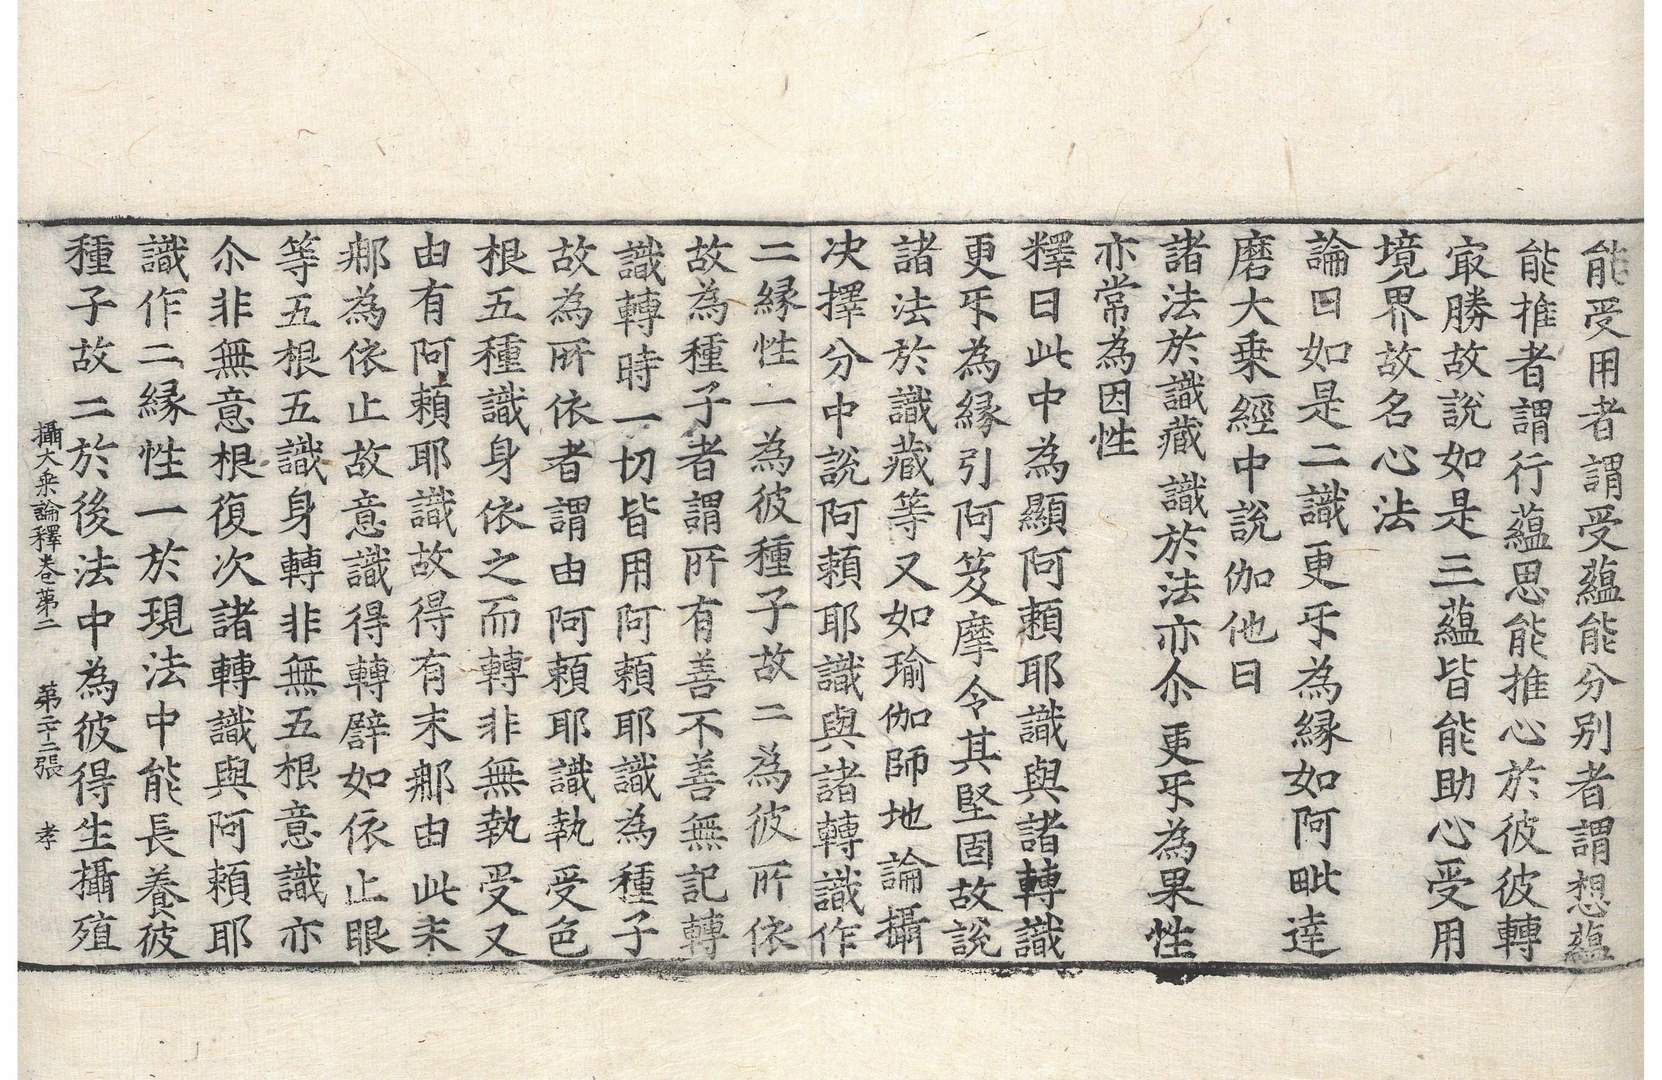 能受用者謂受蘊能分別者謂想蘊
能推者謂行蘊思能推心於彼彼轉
㝡勝故說如是三蘊皆能助心受用
境界故名心法
論曰如是二識更㸦為緣如阿毗達
磨大乘經中說伽他曰
諸法於識藏識於法亦尒更㸦為果性
亦常為因性
釋曰此中為顯阿頼耶識與諸轉識
更㸦為緣引阿笈摩令其堅固故說
諸法於識藏等又如瑜伽師地論攝
決擇分中說阿頼耶識與諸轉識作
二緣性一為彼種子故二為彼所依
故為種子者謂所有善不善無記轉
識轉時一切皆用阿頼耶識為種子
故為所依者謂由阿頼耶識執受色
根五種識身依之而轉非無執受又
由有阿頼耶識故得有末那由此末
那為依止故意識得轉譬如依止眼
等五根五識身轉非無五根意識亦
尒非無意根復次諸轉識與阿頼耶
識作二緣性一於現法中能長養彼
種子故二於後法中為彼得生攝殖
攝大乗論釋卷苐二 苐二十二張 孝